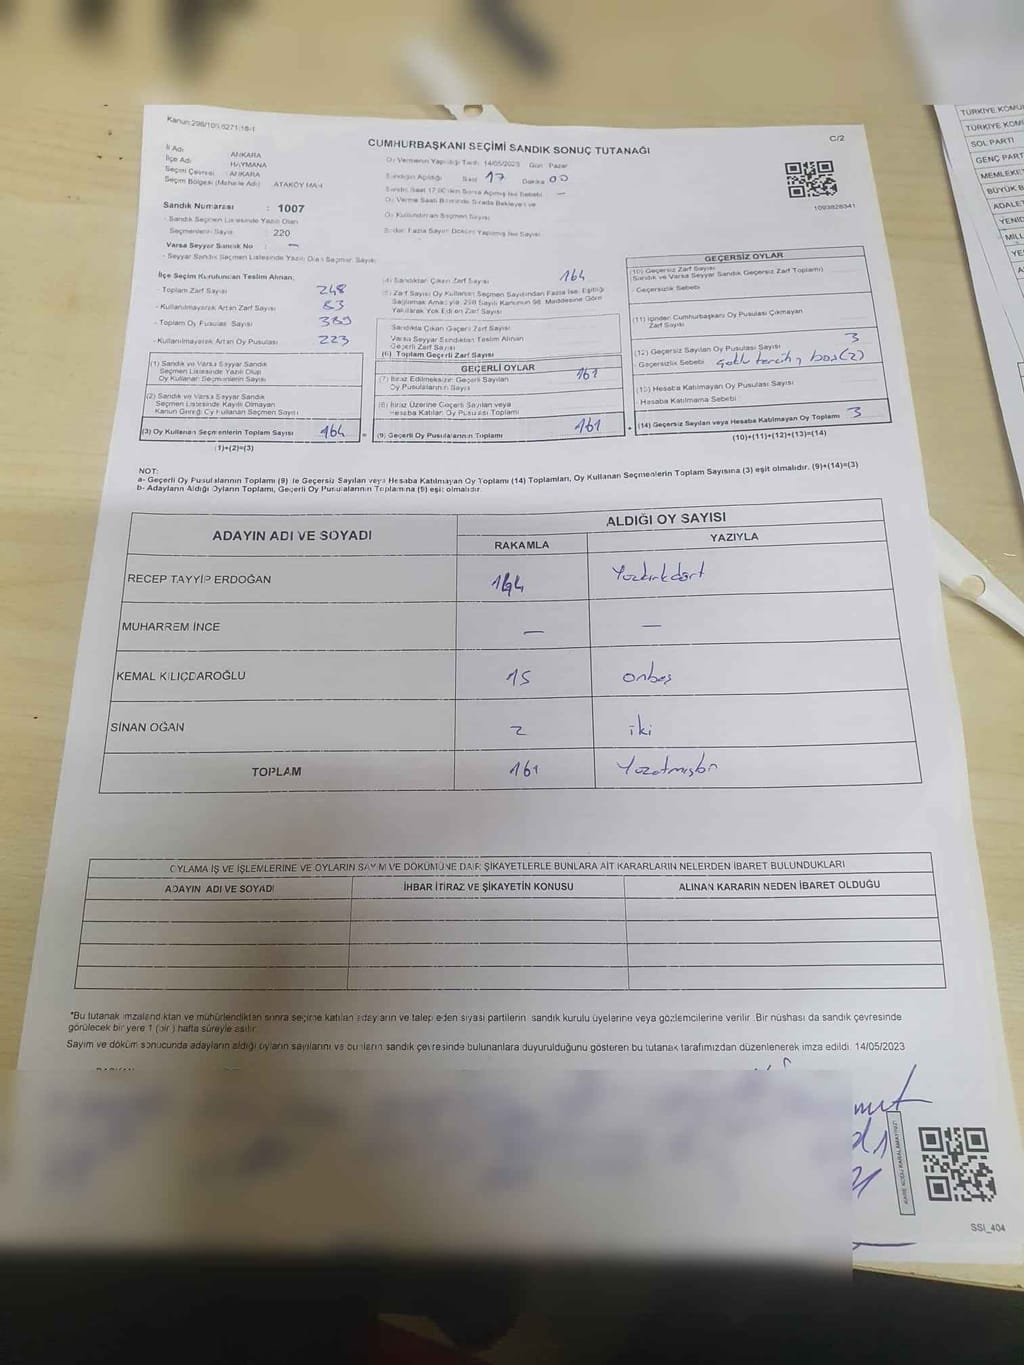 Kanun:298/105,6271:16-1
C/2
CUMHURBAŞKANI SEÇİMİ SANDIK SONUÇ TUTANAĞI
İl Adı ANKARA
İlçe Adı HAYMANA
Seçim Çevresi : ANKARA
Seçim Bölgesi (Mahalle Adı) ATAKÖY MAH
Oy Vermenin Yapıldığı Tarih 14/05/2023 Gün Pazar
Sandığın Açıldığı Saat 17 Dakika 00
Sandık Saat 17.00'den Sonra Açılmış İse Sebebi —
Oy Verme Saati Bitiminde Sırada Bekleyen ve
Oy Kullandırılan Seçmen Sayısı
1093828341
Sandık Numarası : 1007
- Sandık Seçmen Listesinde Yazılı Olan
Seçmenlerin Sayısı : 220
Varsa Seyyar Sandık No : —
- Seyyar Sandık Seçmen Listesinde Yazılı Olan Seçmen Sayısı
İlçe Seçim Kurulundan Teslim Alınan;
- Toplam Zarf Sayısı 248
- Kullanılmayarak Artan Zarf Sayısı 83
- Toplam Oy Pusulası Sayısı 389
- Kullanılmayarak Artan Oy Pusulası 223
(1) Sandık ve Varsa Seyyar Sandık
Seçmen Listesinde Yazılı Olup
Oy Kullanan Seçmenlerin Sayısı
(2) Sandık ve Varsa Seyyar Sandık
Seçmen Listesinde Kayıtlı Olmayan
Kanun Gereği Oy Kullanan Seçmen Sayısı
(3) Oy Kullanan Seçmenlerin Toplam Sayısı 164
(1)+(2)=(3)
(4) Sandıktan Çıkan Zarf Sayısı 164
(5) Zarf Sayısı Oy Kullanan Seçmen Sayısından Fazla İse, Eşitliği
Sağlamak Amacıyla, 298 Sayılı Kanunun 98. Maddesine Göre
Yakılarak Yok Edilen Zarf Sayısı
Sandıkta Çıkan Geçerli Zarf Sayısı
Varsa Seyyar Sandıktan Teslim Alınan
Geçerli Zarf Sayısı
(6) Toplam Geçerli Zarf Sayısı
GEÇERLİ OYLAR
(7) İtiraz Edilmeksizin Geçerli Sayılan
Oy Pusulalarının Sayısı 161
(8) İtiraz Üzerine Geçerli Sayılan veya
Hesaba Katılan Oy Pusulası Toplamı
(9) Geçerli Oy Pusulalarının Toplamı 161
GEÇERSİZ OYLAR
(10) Geçersiz Zarf Sayısı
(Sandık ve Varsa Seyyar Sandık Geçersiz Zarf Toplamı)
- Geçersizlik Sebebi
(11) İçinden Cumhurbaşkanı Oy Pusulası Çıkmayan
Zarf Sayısı
(12) Geçersiz Sayılan Oy Pusulası Sayısı 3
Geçersizlik Sebebi tercih, boş(2)
(13) Hesaba Katılmayan Oy Pusulası Sayısı
- Hesaba Katılmama Sebebi
(14) Geçersiz Sayılan veya Hesaba Katılmayan Oy Toplamı 3
(10)+(11)+(12)+(13)=(14)
NOT:
a- Geçerli Oy Pusulalarının Toplamı (9) ile Geçersiz Sayılan veya Hesaba Katılmayan Oy Toplamı (14) Toplamları, Oy Kullanan Seçmenlerin Toplam Sayısına (3) eşit olmalıdır. (9)+(14)=(3)
b- Adayların Aldığı Oyların Toplamı, Geçerli Oy Pusulalarının Toplamına (9) eşit olmalıdır.
ADAYIN ADI VE SOYADI
ALDIĞI OY SAYISI
RAKAMLA YAZIYLA
RECEP TAYYİP ERDOĞAN 144 Yüzkırkdört
MUHARREM İNCE — —
KEMAL KILIÇDAROĞLU 15 onbeş
SİNAN OĞAN 2 iki
TOPLAM 161 Yüzatmışbir
OYLAMA İŞ VE İŞLEMLERİNE VE OYLARIN SAYIM VE DÖKÜMÜNE DAİR ŞİKAYETLERLE BUNLARA AİT KARARLARIN NELERDEN İBARET BULUNDUKLARI
ADAYIN ADI VE SOYADI İHBAR İTİRAZ VE ŞİKAYETİN KONUSU ALINAN KARARIN NEDEN İBARET OLDUĞU
*Bu tutanak imzalandıktan ve mühürlendikten sonra seçime katılan adayların ve talep eden siyasi partilerin sandık kurulu üyelerine veya gözlemcilerine verilir. Bir nüshası da sandık çevresinde
görülecek bir yere 1 (bir) hafta süreyle asılır.
Sayım ve döküm sonucunda adayların aldığı oyların sayılarını ve bunların sandık çevresinde bulunanlara duyurulduğunu gösteren bu tutanak tarafımızdan düzenlenerek imza edildi. 14/05/2023
SSI_404
TÜRKİYE KOMÜ
TÜRKİYE KOM
SOL PARTİ
GENÇ PART
MEMLEKE
BÜYÜK B
ADALE
YENİD
MİLL
YE